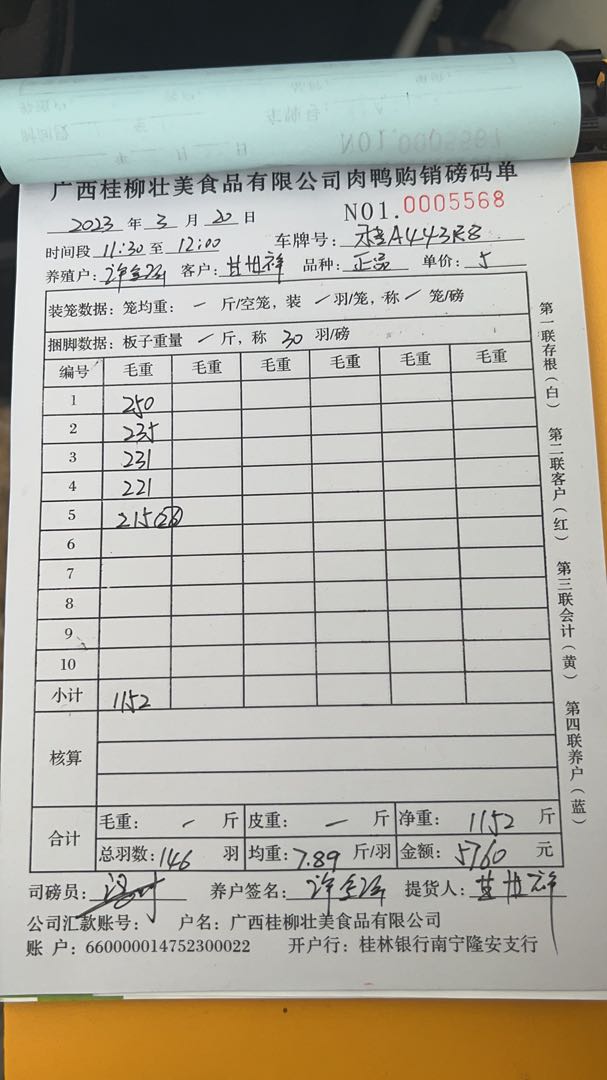 广西桂柳壮美食品有限公司肉鸭购销磅码单
2023 年 3 月 20 日 NO1.0005568
时间段 11:30 至 12:00 车牌号: 桂A443R8
养殖户: 客户: 甘世祥 品种: 正品 单价: 5
装笼数据: 笼均重: - 斤/空笼, 装 / 羽/笼, 称 / 笼/磅
捆脚数据: 板子重量 - 斤, 称 30 羽/磅
编号 毛重 毛重 毛重 毛重 毛重 毛重
1 250
2 235
3 231
4 221
5 215 26
6
7
8
9
10
小计 1152
核算
合计 毛重: - 斤 皮重: - 斤 净重: 1152 斤
总羽数: 146 羽 均重: 7.89 斤/羽 金额: 5760 元
司磅员: 养户签名: 提货人: 甘世祥
公司汇款账号: 户名: 广西桂柳壮美食品有限公司
账 户: 660000014752300022 开户行: 桂林银行南宁隆安支行
第一联存根(白)
第二联客户(红)
第三联会计(黄)
第四联养户(蓝)